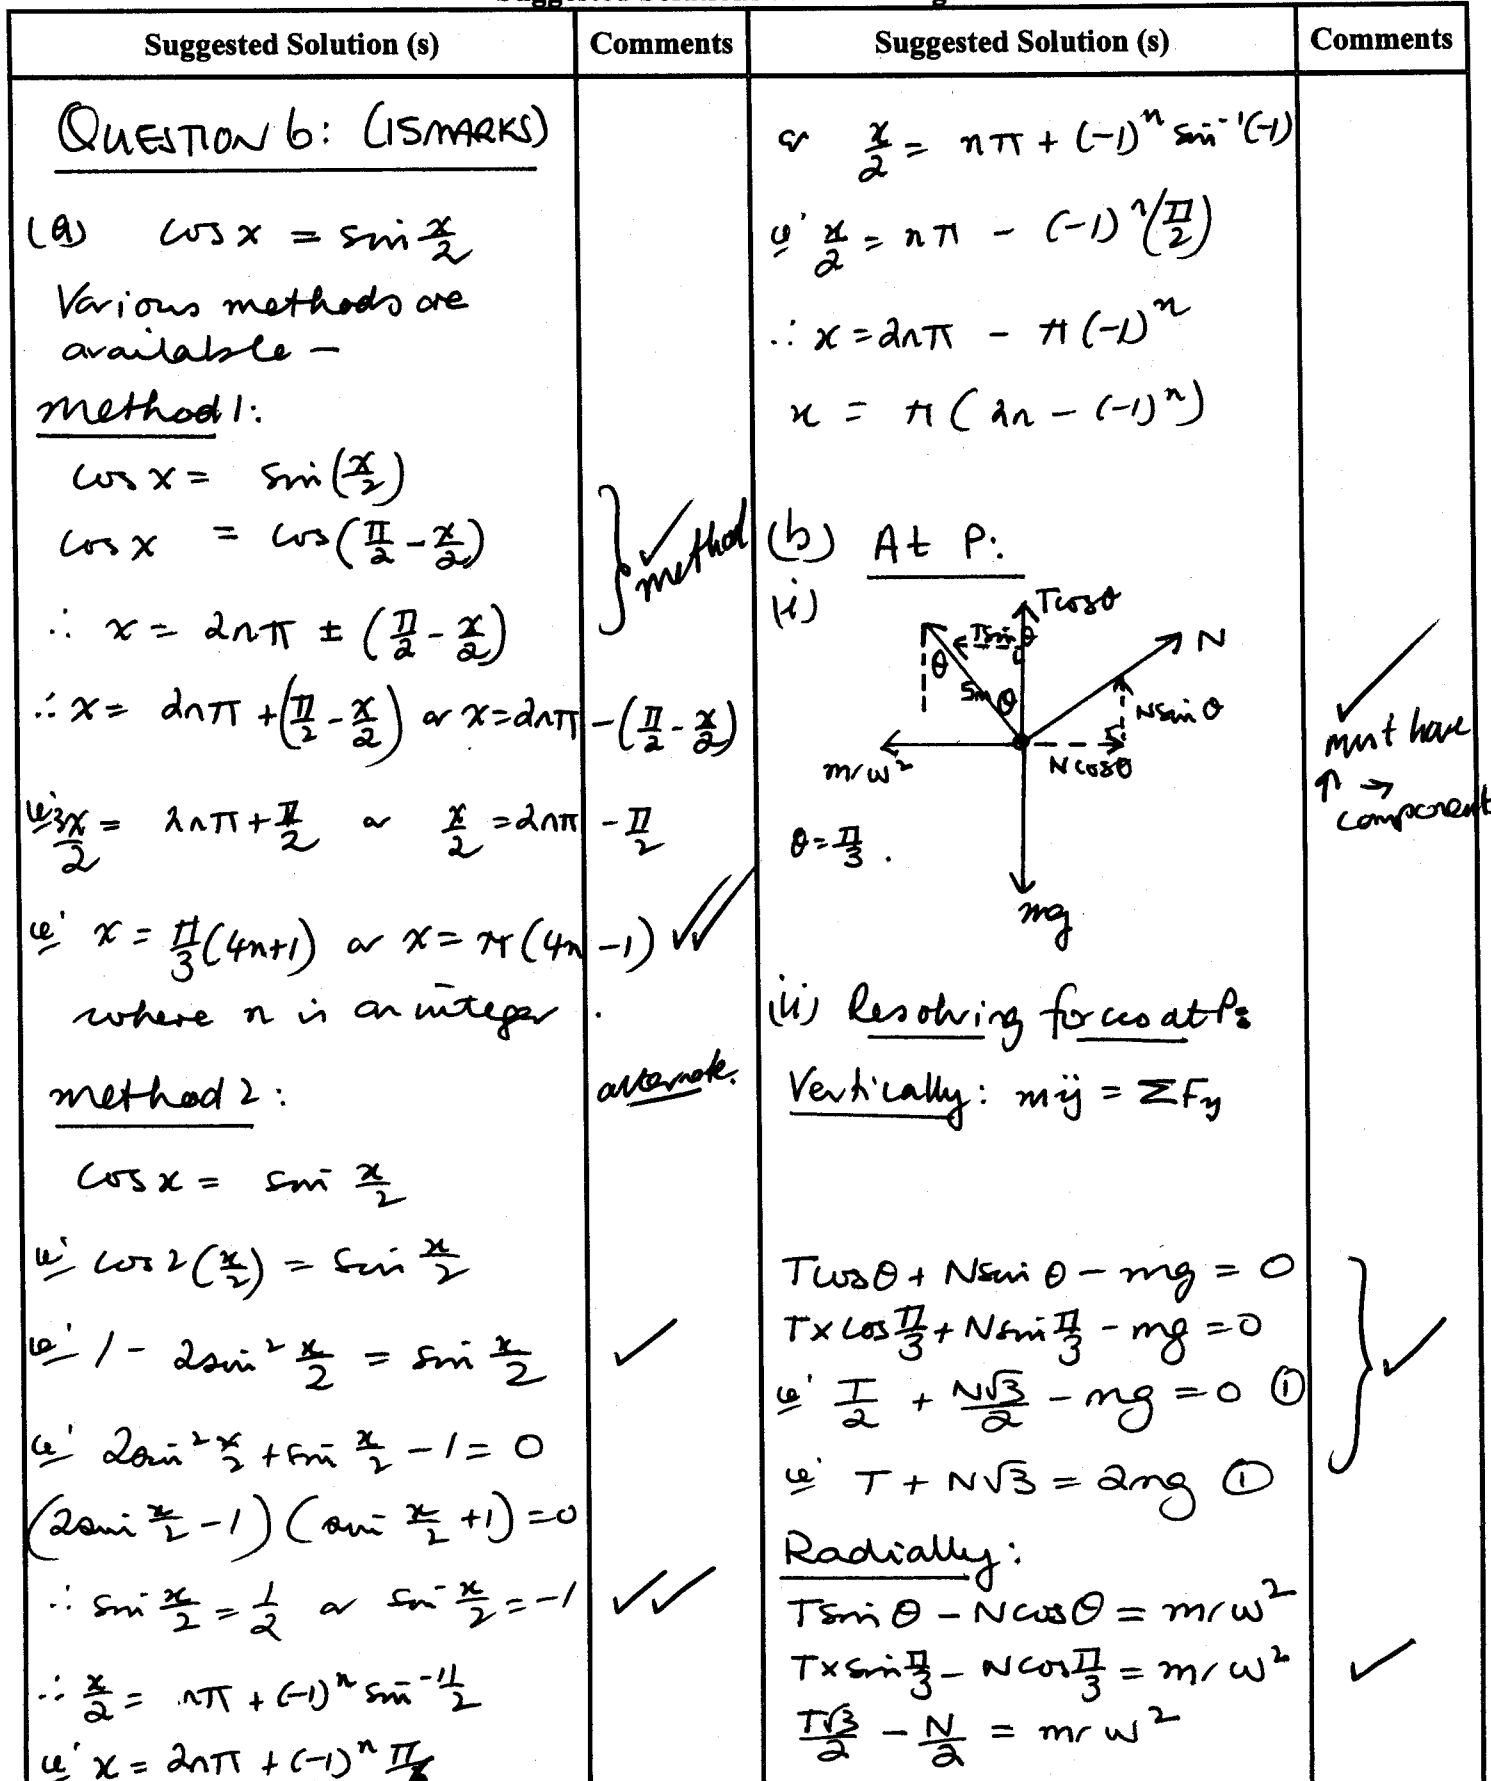 Suggested Solution (s)
Comments
QUESTION 6: (15 MARKS)
(a) cos x = sin x/2
Various methods are
available –
Method 1:
cos x = sin(x/2)
cos x = cos(π/2 - x/2)
} ✓ method
∴ x = 2nπ ± (π/2 - x/2)
∴ x = 2nπ + (π/2 - x/2) or x = 2nπ - (π/2 - x/2)
ie 3x/2 = 2nπ + π/2 or x/2 = 2nπ - π/2
ie x = π/3 (4n+1) or x = π(4n-1) ✓✓
where n is an integer.
method 2:
alternate.
cos x = sin x/2
ie cos 2(x/2) = sin x/2
ie 1 - 2sin² x/2 = sin x/2 ✓
ie 2sin² x/2 + sin x/2 - 1 = 0
(2sin x/2 - 1)(sin x/2 + 1) = 0
∴ sin x/2 = 1/2 or sin x/2 = -1 ✓✓
∴ x/2 = nπ + (-1)ⁿ sin⁻¹ 1/2
ie x = 2nπ + (-1)ⁿ
Suggested Solution (s)
Comments
or x/2 = nπ + (-1)ⁿ sin⁻¹(-1)
ie x/2 = nπ - (-1)ⁿ(π/2)
∴ x = 2nπ - π(-1)ⁿ
x = π(2n - (-1)ⁿ)
(b) At P:
(i)
Tcosθ
Tsinθ
N
θ
5m
θ
Nsinθ
mrω²
Ncosθ
θ = π/3.
mg
✓
must have
↑ →
component
(ii) Resolving forces at P:
Vertically: mÿ = ΣFy
Tcosθ + Nsinθ - mg = 0
T×cos π/3 + Nsin π/3 - mg = 0
ie T/2 + N√3/2 - mg = 0 ①
ie T + N√3 = 2mg ①
} ✓
Radially:
Tsinθ - Ncosθ = mrω²
T×sin π/3 - Ncos π/3 = mrω² ✓
T√3/2 - N/2 = mrω²